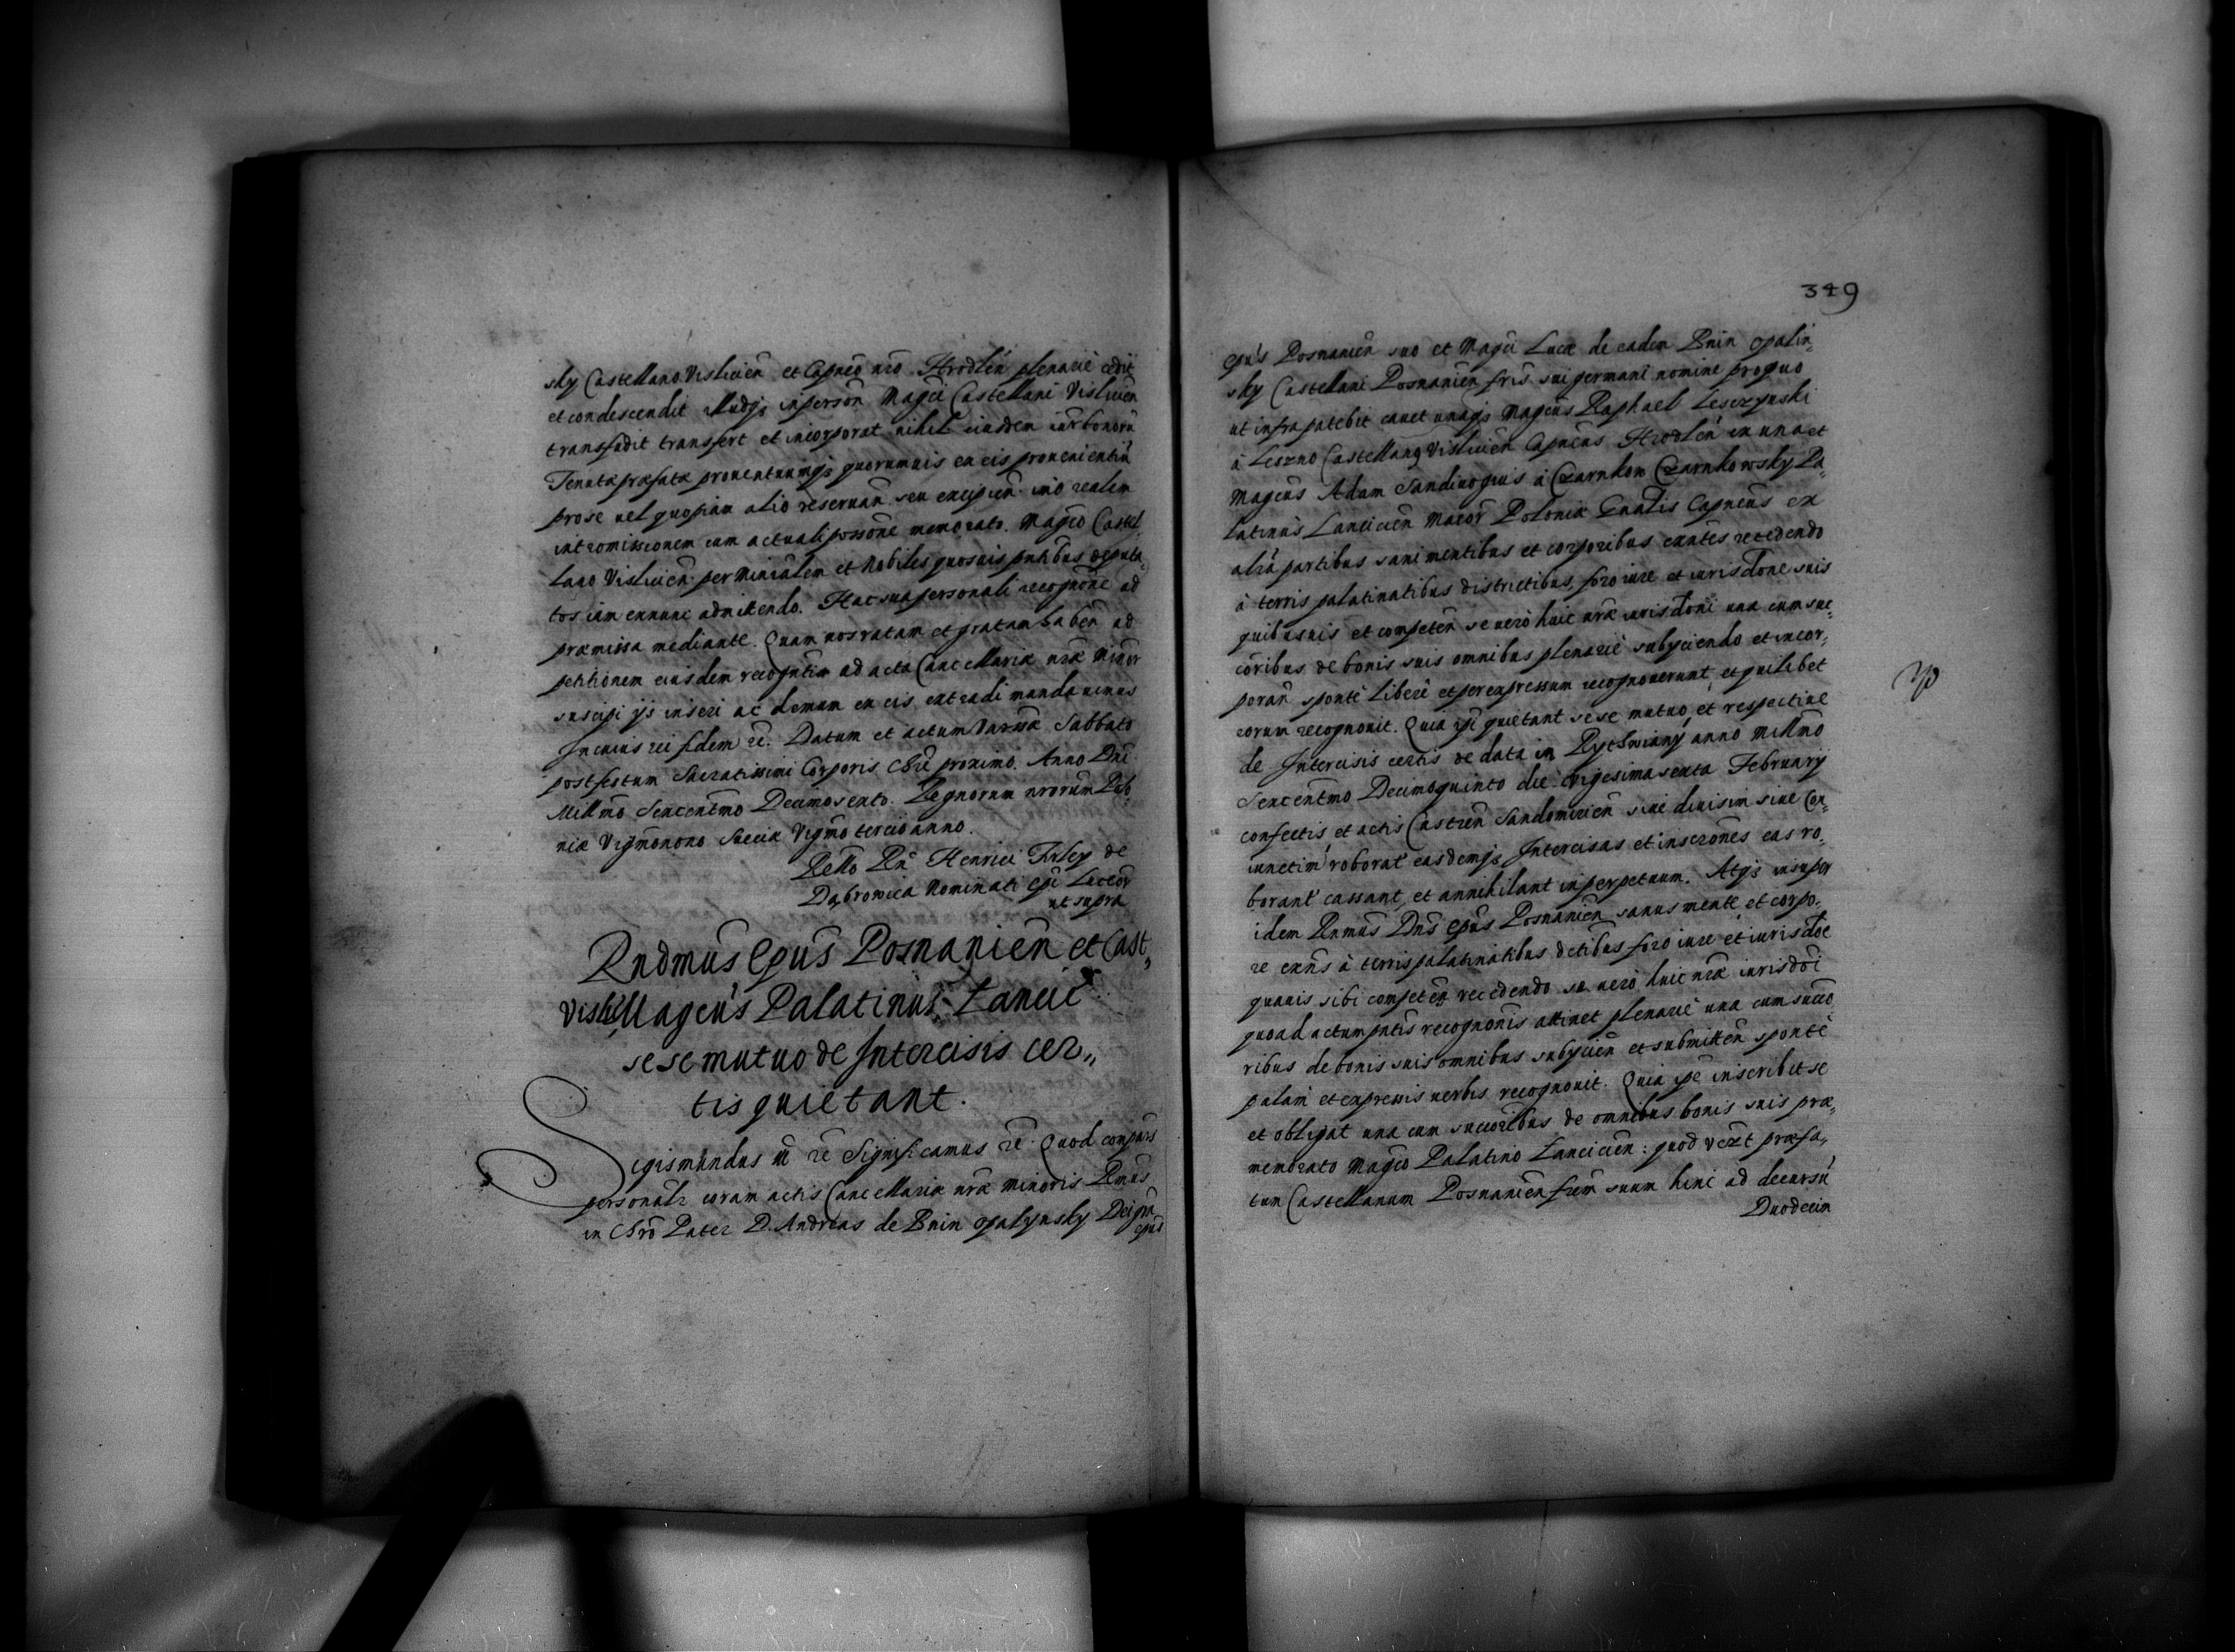 sky Castellano Vislicien̄ et Capn̄eo nr̄o Hrodlen̄ plenariè cedit
et condescendit Illudq̨ in person̄ Magc̄i Castellani Vislicien̄
transfudit transfert et incorporat nihil eiusdem iur bonorū
Tenutæ præfatæ prouentuumq̨ quorumuis ex eis prouenientiū
pro se uel quopiam alio reseruan̄ seu excipien̄ imò realem
intromissionem cum actuali possōne memorato Magc̄o Castel,
lano Vislicien̄ per Mīnrālem et Nobiles quosuis pn̄tibus deputa,
tos iam exnunc admittendo. Hac sua personali recogn̄one ad
præmissa mediante. Quam nos ratam et gratam haben̄ ad
petitionem eiusdem recogn̄tis ad acta Cancellariæ nr̄æ Minor
suscipi ijs inseri ac demum ex eis extradi mandauimus
In cuius rei fidem rc̄. Datum et actum Varsaæ Sabbato
post festum Sacratissimi Corporis Chr̄i proximo. Anno Dn̄i
Millm̄o Sexcentm̄o Decimosexto. Regnorum nrorum Polo,
niæ Vigm̄onono Sueciæ Vigm̄o tercio anno.
Rello Rn̄ Henrici Firley de
Dąbrowica Nominati ep̄i Luceor̄
ut supra
Rndmūs Epūs Posnanien̄ et Cast,
Vislic̄ Magcūs Palatinus Lancic̄
sese mutuo de Intercisis cer,,
tis quietant.
Sigismundus III rc̄ Significamus rc̄. Quod conpars
personalr̄ coram actis Cancellariæ nr̄æ Minoris Rmūs
in Chrō Pater D. Andreas de Bnin Opalynsky Dei grā
epūs
349
epūs Posnanien̄ suo et Magc̄i Lucæ de eadem Bnin Opalin,
sky Castellani Posnanien̄ frīs sui germani nomine pro quo
ut infra patebit cauet unaq̨ Magcūs Raphael Lesczynski
à Leszno Castellanꝰ Vislicien̄ Capneūs Hrodlen̄ ex una et
Magcūs Adam Sandiuogius à Czarnkow Czarnkowsky Pa,
latinūs Lancicien̄ Maior̄ Poloniæ Gnālis Capneūs ex
aliā partibus sani mentibus et corporibus exn̄tes recedendo
à terris palatinatibus districtibus, foro iure et iurisdōne suis
quibusuis et competen̄ se uerò huic nr̄æ iurisdōni una cum suc,
coribus de bonis suis omnibus plenariè subijciendo et incor,
poran̄ spontè liberè et per expressum recognouerunt, et quilibet
eorum recognouit. Quia ipī quietant sese mutuo, et respectiue
de Intercisis certis de data in Rythwiany anno Millm̄o
Sexcentm̄o Decimoquinto die Vigesimasexta February
confectis, et actis Castren̄ Sandomirien̄ siue diuisim siue Con,
iunctim roborat̄ easdemq̨ Intercisas et inscrōnes eas ro,
borant̄ cassant, et annihilant in perpetuum. Atq̨ insuper
idem Rmūs Dn̄s Epūs Posnanien̄ sanus mente et corpo,
re exn̄s à terris palatinatibus dctibus foro iure et iurisdōe
quauis sibi competen̄ recedendo se uerò huic nr̄æ iurisdōi
quoad actum pn̄tis recogn̄onis attinet plenariè una cum succō
ribus de bonis suis omnibus subijcien̄ et submitten̄ spontè
palam et expressis uerbis recognouit. Quia ipē inscribit se
et obligat una cum succōribus de omnibus bonis suis præ,
memorato Magc̄o Palatino Lancicien̄: quod uerŧ præfa,
tum Castellanum Posnanien̄ frēm suum hinc ad decursū
Duodecim